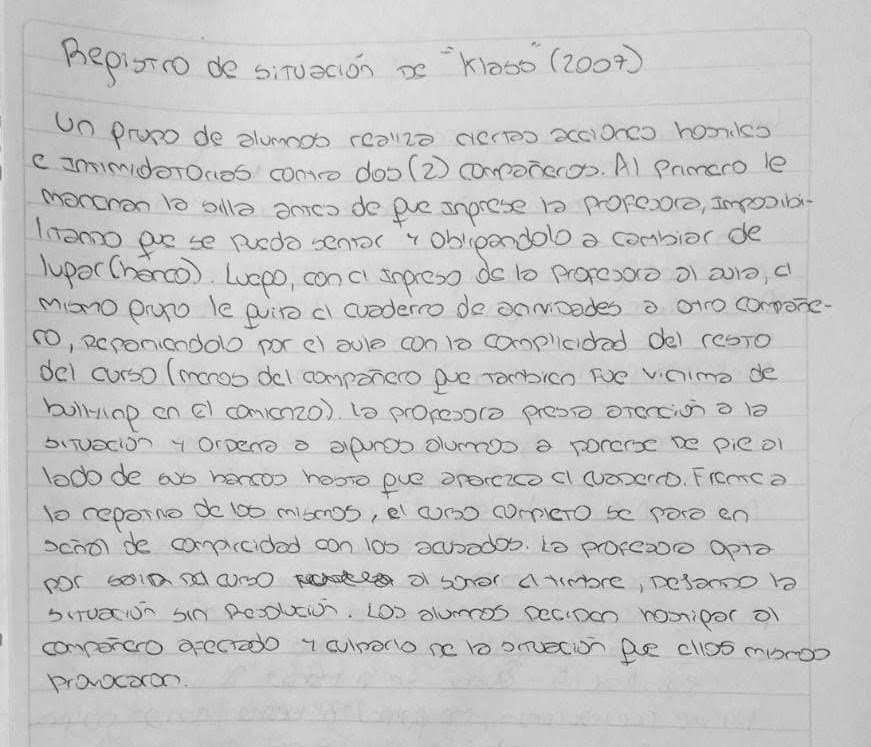 Registro de situación de "Klass" (2007)
Un grupo de alumnos realiza ciertas acciones hostiles
e intimidatorias contra dos (2) compañeros. Al primero le
manchan la silla antes de que ingrese la profesora, imposibi-
litando que se pueda sentar y obligandolo a cambiar de
lugar (banco). Luego, con el ingreso de la profesora al aula, el
mismo grupo le quita el cuaderno de actividades a otro compañe-
ro, reponiendolo por el aula con la complicidad del resto
del curso (menos del compañero que tambien fue victima de
bullying en el comienzo). La profesora presta atención a la
situación y ordena a algunos alumnos a ponerse de pie al
lado de sus bancos hasta que aparezca el cuaderno. Frente a
la negativa de los mismos, el curso completo se para en
señal de complicidad con los acusados. La profesora opta
por salir del curso al sonar el timbre, dejando la
situación sin resolución. Los alumnos deciden hostigar al
compañero afectado y culparlo de la situación que ellos mismos
provocaron.